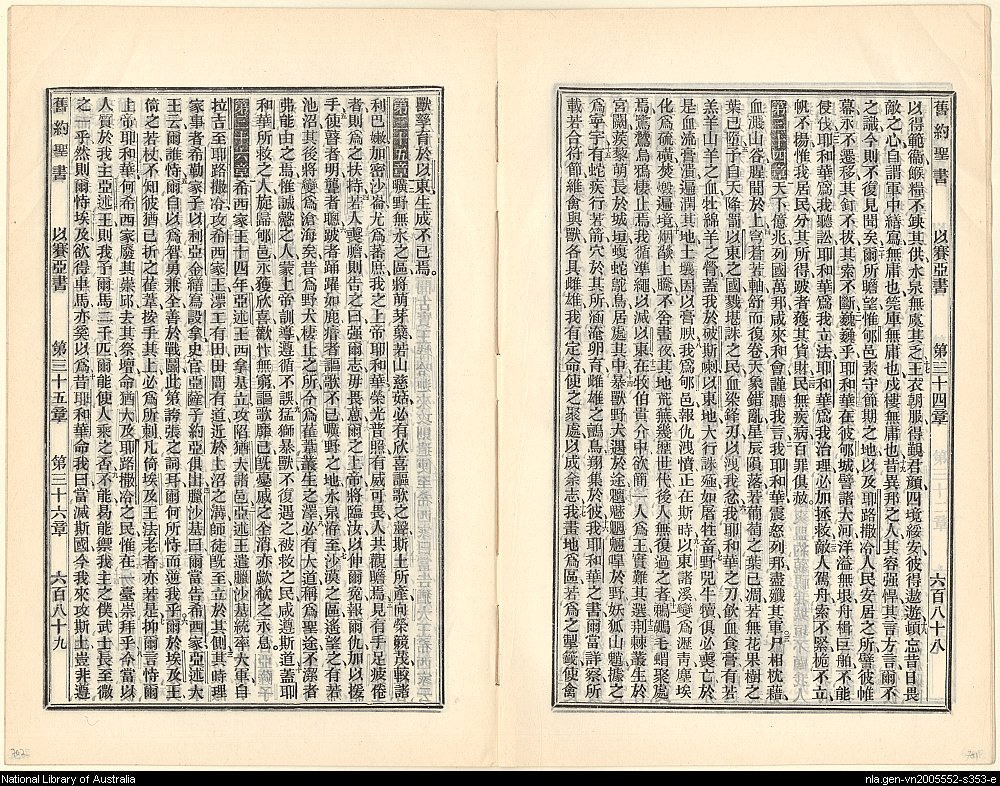 舊約聖書 以賽亞書 第三十四章 六百八十八
以得範衞餱糧不缺其供水泉無虞其乏王衣朝服得觀君顏四境綏安彼得遨遊頓忘昔日畏
敵之心自謂軍中繕寫無庸也筦庫無庸也戍樓無庸也昔異邦之人其容强悍其言方言爾不
之識今則不復見聞矣爾所瞻望惟郇邑素守節期之地以及耶路撒冷人民安居之所譬彼帷
幕永不遷移其釘不拔其索不斷巍巍乎耶和華在彼郇城譬諸大河洋溢無垠舟楫巨舶不能
侵伐耶和華爲我聽訟耶和華爲我立法耶和華爲我治理必加拯救敵人駕舟索不緊桅不立
帆不楊惟我居民分其所得跛者獲其貨財民無疾病百罪俱赦
第三十四章 天下億兆列國萬邦咸來和會謹聽我言我耶和華震怒列邦盡殱其軍尸相枕藉
血濺山谷腥聞於上穹蒼若軸舒而復卷天象錯亂星辰隕落若葡萄之葉已凋若無花果樹之
葉已墮予自天降罰以東之國戮堪誅之民血染鋒刃以洩我忿我耶和華之刀飲血食膏有若
羔羊山羊之血牡綿羊之膏蓋我於破斯喇以東地大行誅殛如屠牲畜野兕牛犢俱必喪亡於
是血流膏潰遍潤其地土壤因以膏腴我爲郇邑報仇洩憤正在斯時以東諸溪變爲瀝靑塵埃
化爲硫磺焚燬遍境烟燄上騰不舍晝夜其地荒蕪幾歷世代後人無復過之者鵜鶘毛蝟聚處
焉鷺鷥烏鴉棲止焉我循準繩以滅東地在牧伯貴介中欲簡一人爲王實難其選荊棘叢生於
宮闕蒺藜萌長於城垣蝮蛇鴕鳥居處其中暴獸野犬遇於途魑魅魍魎嘷於野妖狐山魈據之
爲寧宇有蛇疾行若箭穴於其所涵淹卵育雌雄之鸇烏翔集於彼我耶和華之書爾當詳察所
載若合符節維禽與獸各具雌雄我有定命使之聚處以成余志我畫地爲區若爲之掣籤使禽
獸孳育於以東生成不已焉
第三十五章 曠野無水之區將萌芽蘖若山慈菇必有欣喜謳歌之聲斯土所產向榮競茂較諸
利巴嫩加密沙崙尤爲蕃庶我之上帝耶和華榮光普照有威可畏人共觀瞻焉見有手足疲倦
者則爲之扶持若人喪膽則告之曰强爾志毋畏意爾之上帝將臨汝以伸爾冤報爾仇加以援
手使瞽者明聾者聰跛者踊躍如鹿瘖者謳歌不已曠野之地永泉湔至沙漠之區遙望之有若
池沼其後將變爲滄海矣昔爲野犬棲止之所今爲萑葦叢生之澤必有大道稱爲聖途不潔者
弗能由之焉惟誠慤之人蒙上帝訓導遵循不誤猛獅暴獸不復遇之被救之民咸遵斯道蓋耶
和華所救之人旋歸郇邑永獲欣喜歡忭無窮謳歌靡已旣憂戚之全消亦歔欷之永息
第三十六章 希西家王十四年亞述王西拿基立攻陷猶大諸邑亞述王遣臘沙基統率大軍自
拉吉至耶路撒冷攻希西家王漂工有田田間有道近於上沼之溝師徒旣至立於其側其時理
家事者希勒家子以利亞金繕寫設拿史官亞薩子約亞俱出臘沙基曰爾當告希西家亞述大
王云爾誰恃爾自以爲智勇兼全善於戰鬭此第誇張之詞耳爾何所恃而逆我乎爾於埃及王
倚之若杖不知彼猶已折之萑葦按手其上必爲所刺凡倚埃及王法老者亦若是抑爾言恃爾
上帝耶和華何希西家廢其崇邱去其祭壇命猶大及耶路撒冷之民惟在一臺崇拜乎今當以
人質於我主亞述王則我予爾馬二千匹爾能使人乘之否不能曷能禦我主之僕武士長至微
之一乎然則爾恃埃及欲得車馬亦奚以爲昔耶和華命我曰當滅斯國今我來攻斯土豈非遵
舊約聖書 以賽亞書 第三十五章 第三十六章 六百八十九
National Library of Australia
nla.gen-vn2005552-s353-e